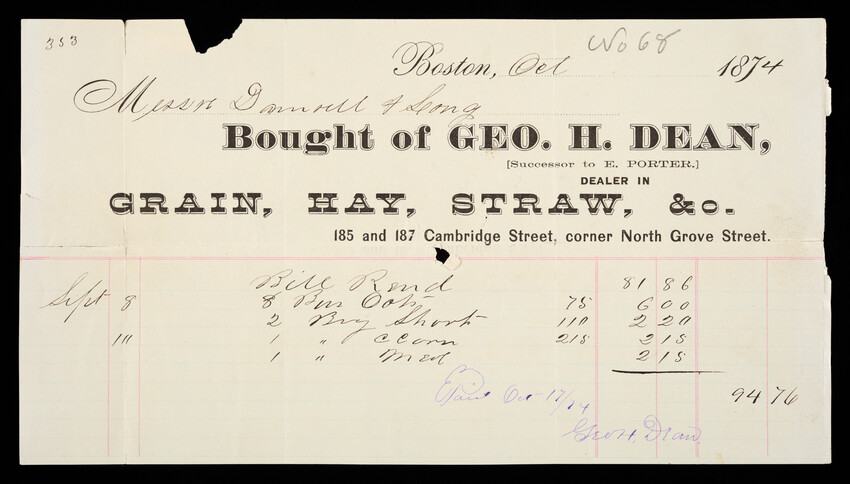 353
No 68
Boston, Oct 1874
Messrs Damrell & Long
Bought of GEO. H. DEAN,
[Successor to E. PORTER.]
DEALER IN
GRAIN, HAY, STRAW, &c.
185 and 187 Cambridge Street, corner North Grove Street.
Bill Rend 81 86
Sept 8 8 Bus Oats 75 6 00
2 Bag Shorts 110 2 20
1 " CCorn 215 2 15
1 " Meal 2 15
94 36
Paid Oct 17/74
Geo H. Dean